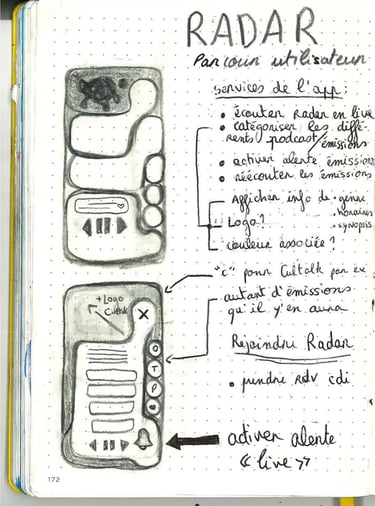 RADAR
Parcour utilisateur
services de l'app:
• écouter Radar en live
• catégoriser les diffé-
rents podcast/émissions
• activer alente émissions
• réécouter les émissions
Afficher info de • genre
• horaires
• synopsis
Logo?
couleur associée?
+ Logo
Cultalk
X
"c" pour Cultalk par ex
autant d'émissions
qu'il y'en aura
C
T
P
Rejoindre Radar
• prendre rdv cdi
activer alente
« live »
172